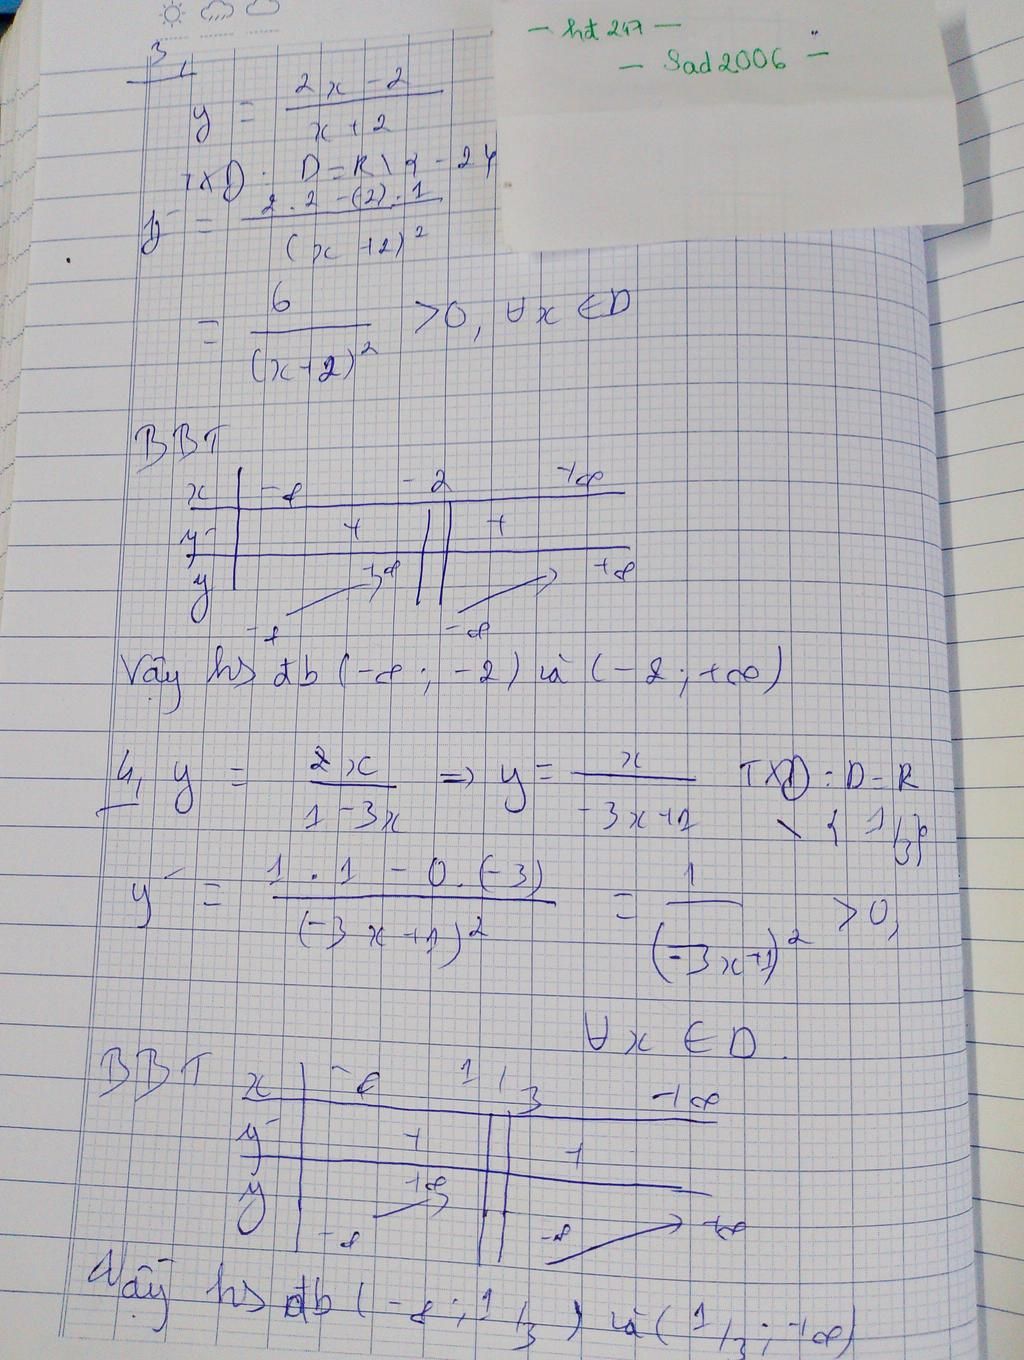 - hđ 247 -
- Sad2006 -
3, y = (2x - 2)/(x + 2)
TXD: D = R \ {-2}
y' = (2.2 - (2).1)/(x + 2)²
= 6/(x+2)² > 0, ∀x ∈ D
BBT
x -∞ -2 +∞
y' + || +
y -∞ ↗ +∞ || -∞ ↗ +∞
Vậy hs đb (-∞; -2) và (-2; +∞)
4, y = 2x/(1 - 3x) => y = x/(-3x+1) TXD: D = R \ {1/3}
y' = (1.1 - 0.(-3))/(-3x+1)² = 1/(-3x+1)² > 0,
∀x ∈ D.
BBT x -∞ 1/3 +∞
y' + || +
y -∞ ↗ +∞ || -∞ ↗ +∞
Vậy hs đb (-∞; 1/3) và (1/3; +∞)